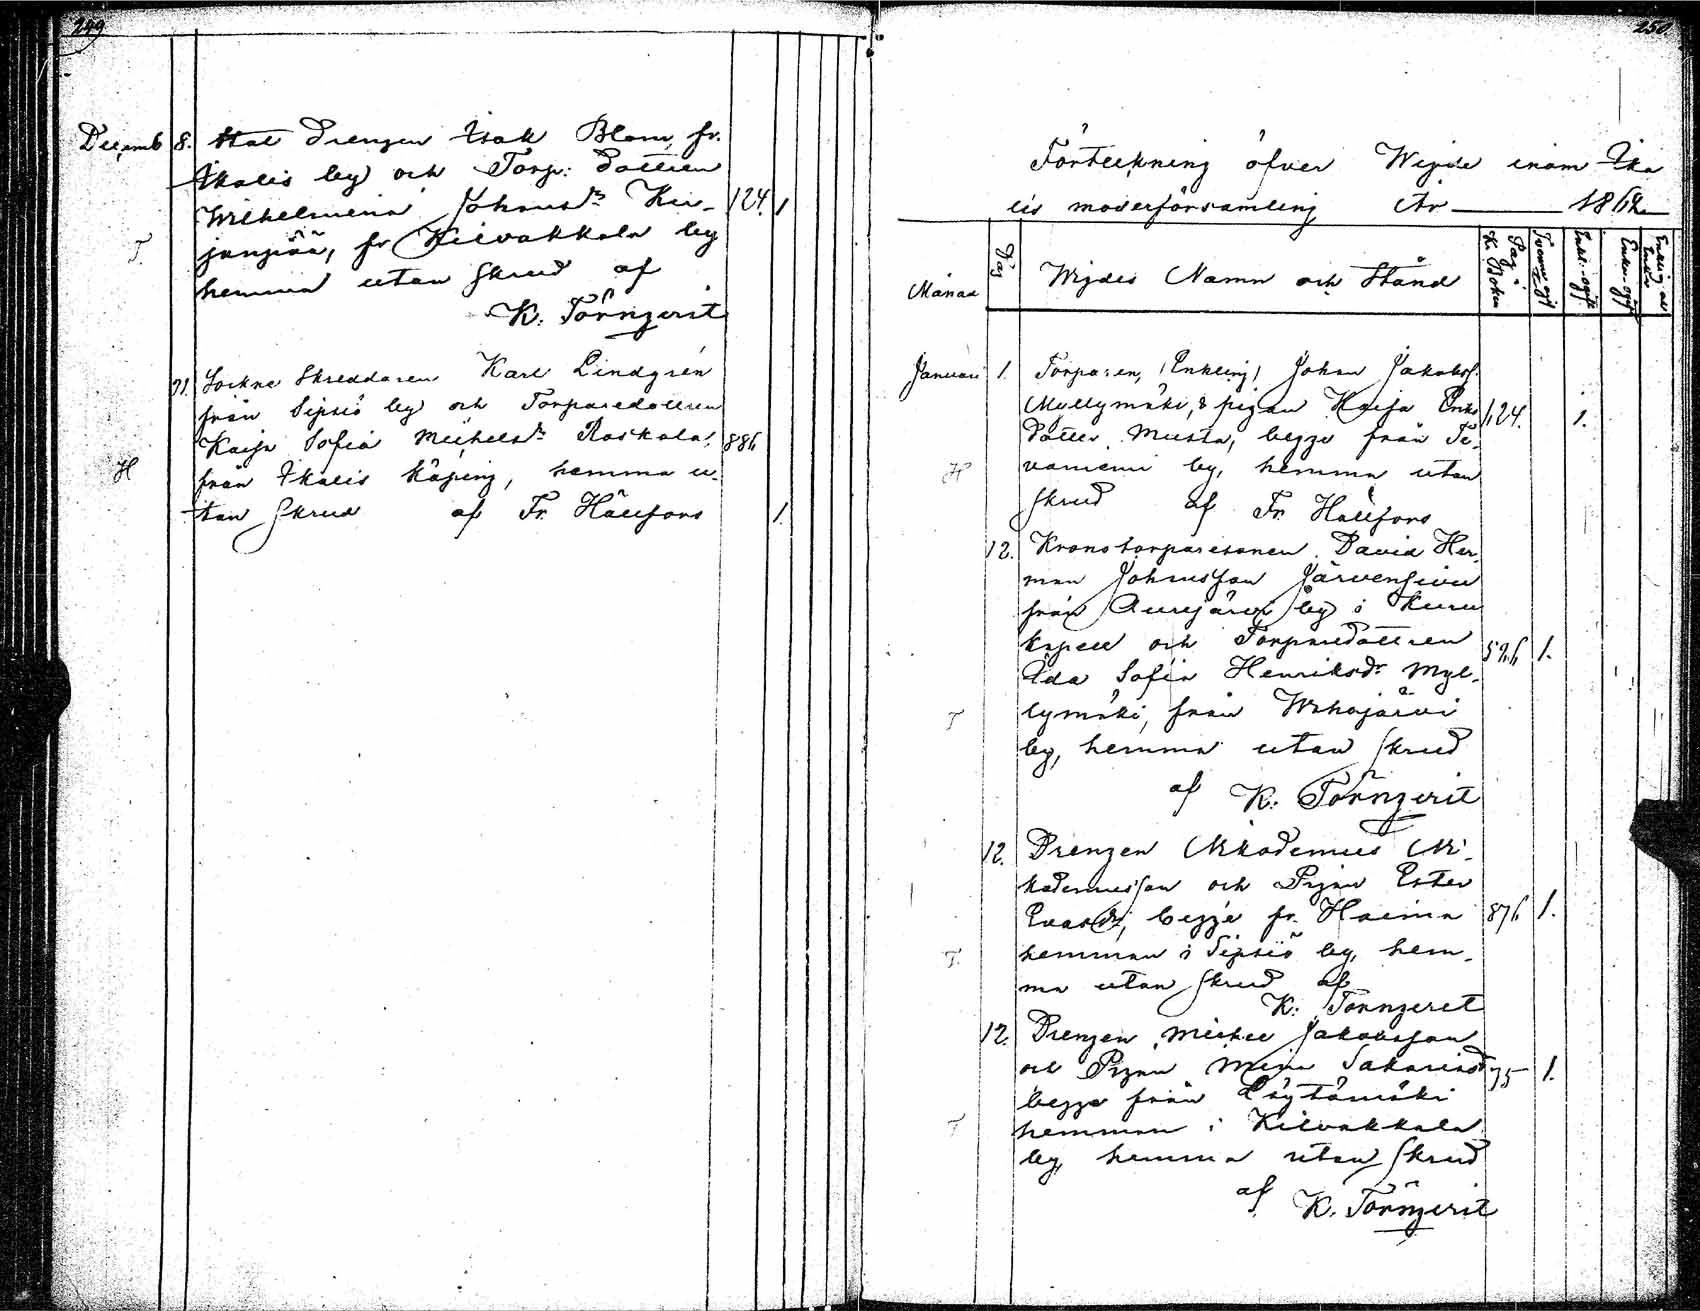 249
Decemb 8. Stat Drengen Isak Blom, fr.
Ikalis by och Torp: dottren
Wilhelmina Johansdr Kiv- 124. 1
janjää, fr Kilvakkala by
T
hemma utan Skrud af
K. Törnqvist
Sockne Skreddaren Karl Lindgrén
från Sipsiö by och Torparedottren
Kaijs Sofia Michelsdr Raskala,
från Ikalis köping, hemma u-
H
tan Skrud af Fr. Hällfors 1.
250.
Förteckning öfver Wigde inom Ika
lis moderförsamling År 186
Månad Dag Wigdes Namn och Stånd Pag i K. Boken
Januari 1. Torparen, (Enkling) Johan Jakobss.
Myllymäki, & pigan Kaisa Eriks
dotter Musta, begge från Te- 124. 1.
vaniemi by, hemma utan
H
Skrud af Fr. Hällfors
12. Kronotorparesonen David Her-
man Johansson Järvensivu
från Aurejärvi by i Kuru
kapell och Torparedottren
Ida Sofia Henriksdr Myl- 1.
lymäki, från Wahojärvi
T
by, hemma utan Skrud
af K. Törnqvist
12. Drengen Nikodemus Ni-
kodemusson och Pigan Ester
Evasdr, begge fr. Haima 1.
hemman i Sipsiö by, hem-
T.
ma utan Skrud af
K. Törnqvist
12. Drengen Michel Jakobsson
och Pigan Mina Sakariasd 1.
begge från Löytömäki
hemman i Kilvakkala
T
by, hemma utan Skrud
af K. Törnqvist